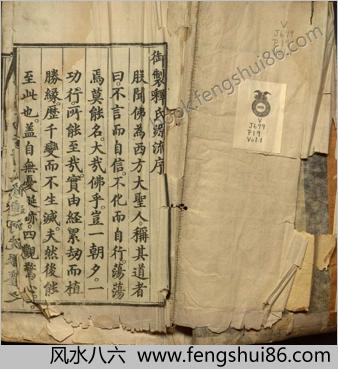 御製釋氏源流序
朕聞佛為西方大聖人稱其道者
曰不言而自信不化而自行蕩蕩
焉莫能名大哉佛乎豈一朝夕一
功行所能至哉實由經累劫而植
勝緣歷千變而不生滅夫然後能
至此也蓋自無憂誕跡四觀驚心
V
J699
F19
V
J699
F19
Vol.1
ok.fengshui86.com
风水八六 www.fengshui86.com